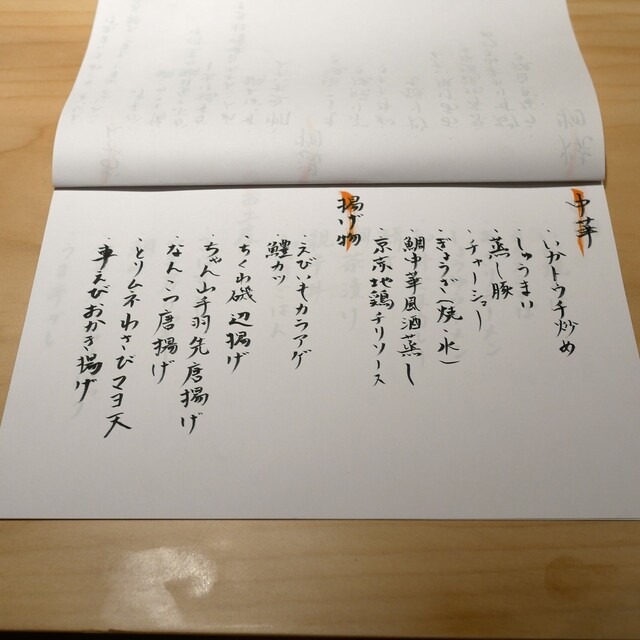 中華
・いかトウチ炒め
・しゅうまい
・蒸し豚
・チャーシュー
・ぎょうざ(焼・水)
・鯛中華風酒蒸し
・京赤地鶏チリソース
揚げ物
・えびいもカラアゲ
・鱧カツ
・ちくわ磯辺揚げ
・ちゃん山手羽先唐揚げ
・なんこつ唐揚げ
・とりムネわさびマヨ天
・車えびおかき揚げ